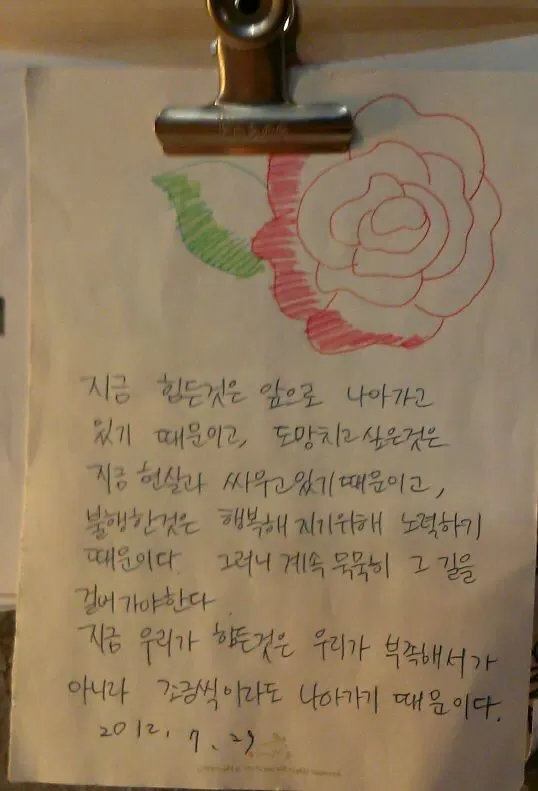 지금 힘든것은 앞으로 나아가고
있기 때문이고, 도망치고 싶은것은
지금 현실과 싸우고있기때문이고,
불행한것은 행복해지기위해 노력하기
때문이다. 그러니 계속 묵묵히 그 길을
걸어가야한다.
지금 우리가 힘든것은 우리가 부족해서가
아니라 조금씩이라도 나아가기 때문이다.
2012. 7. 29